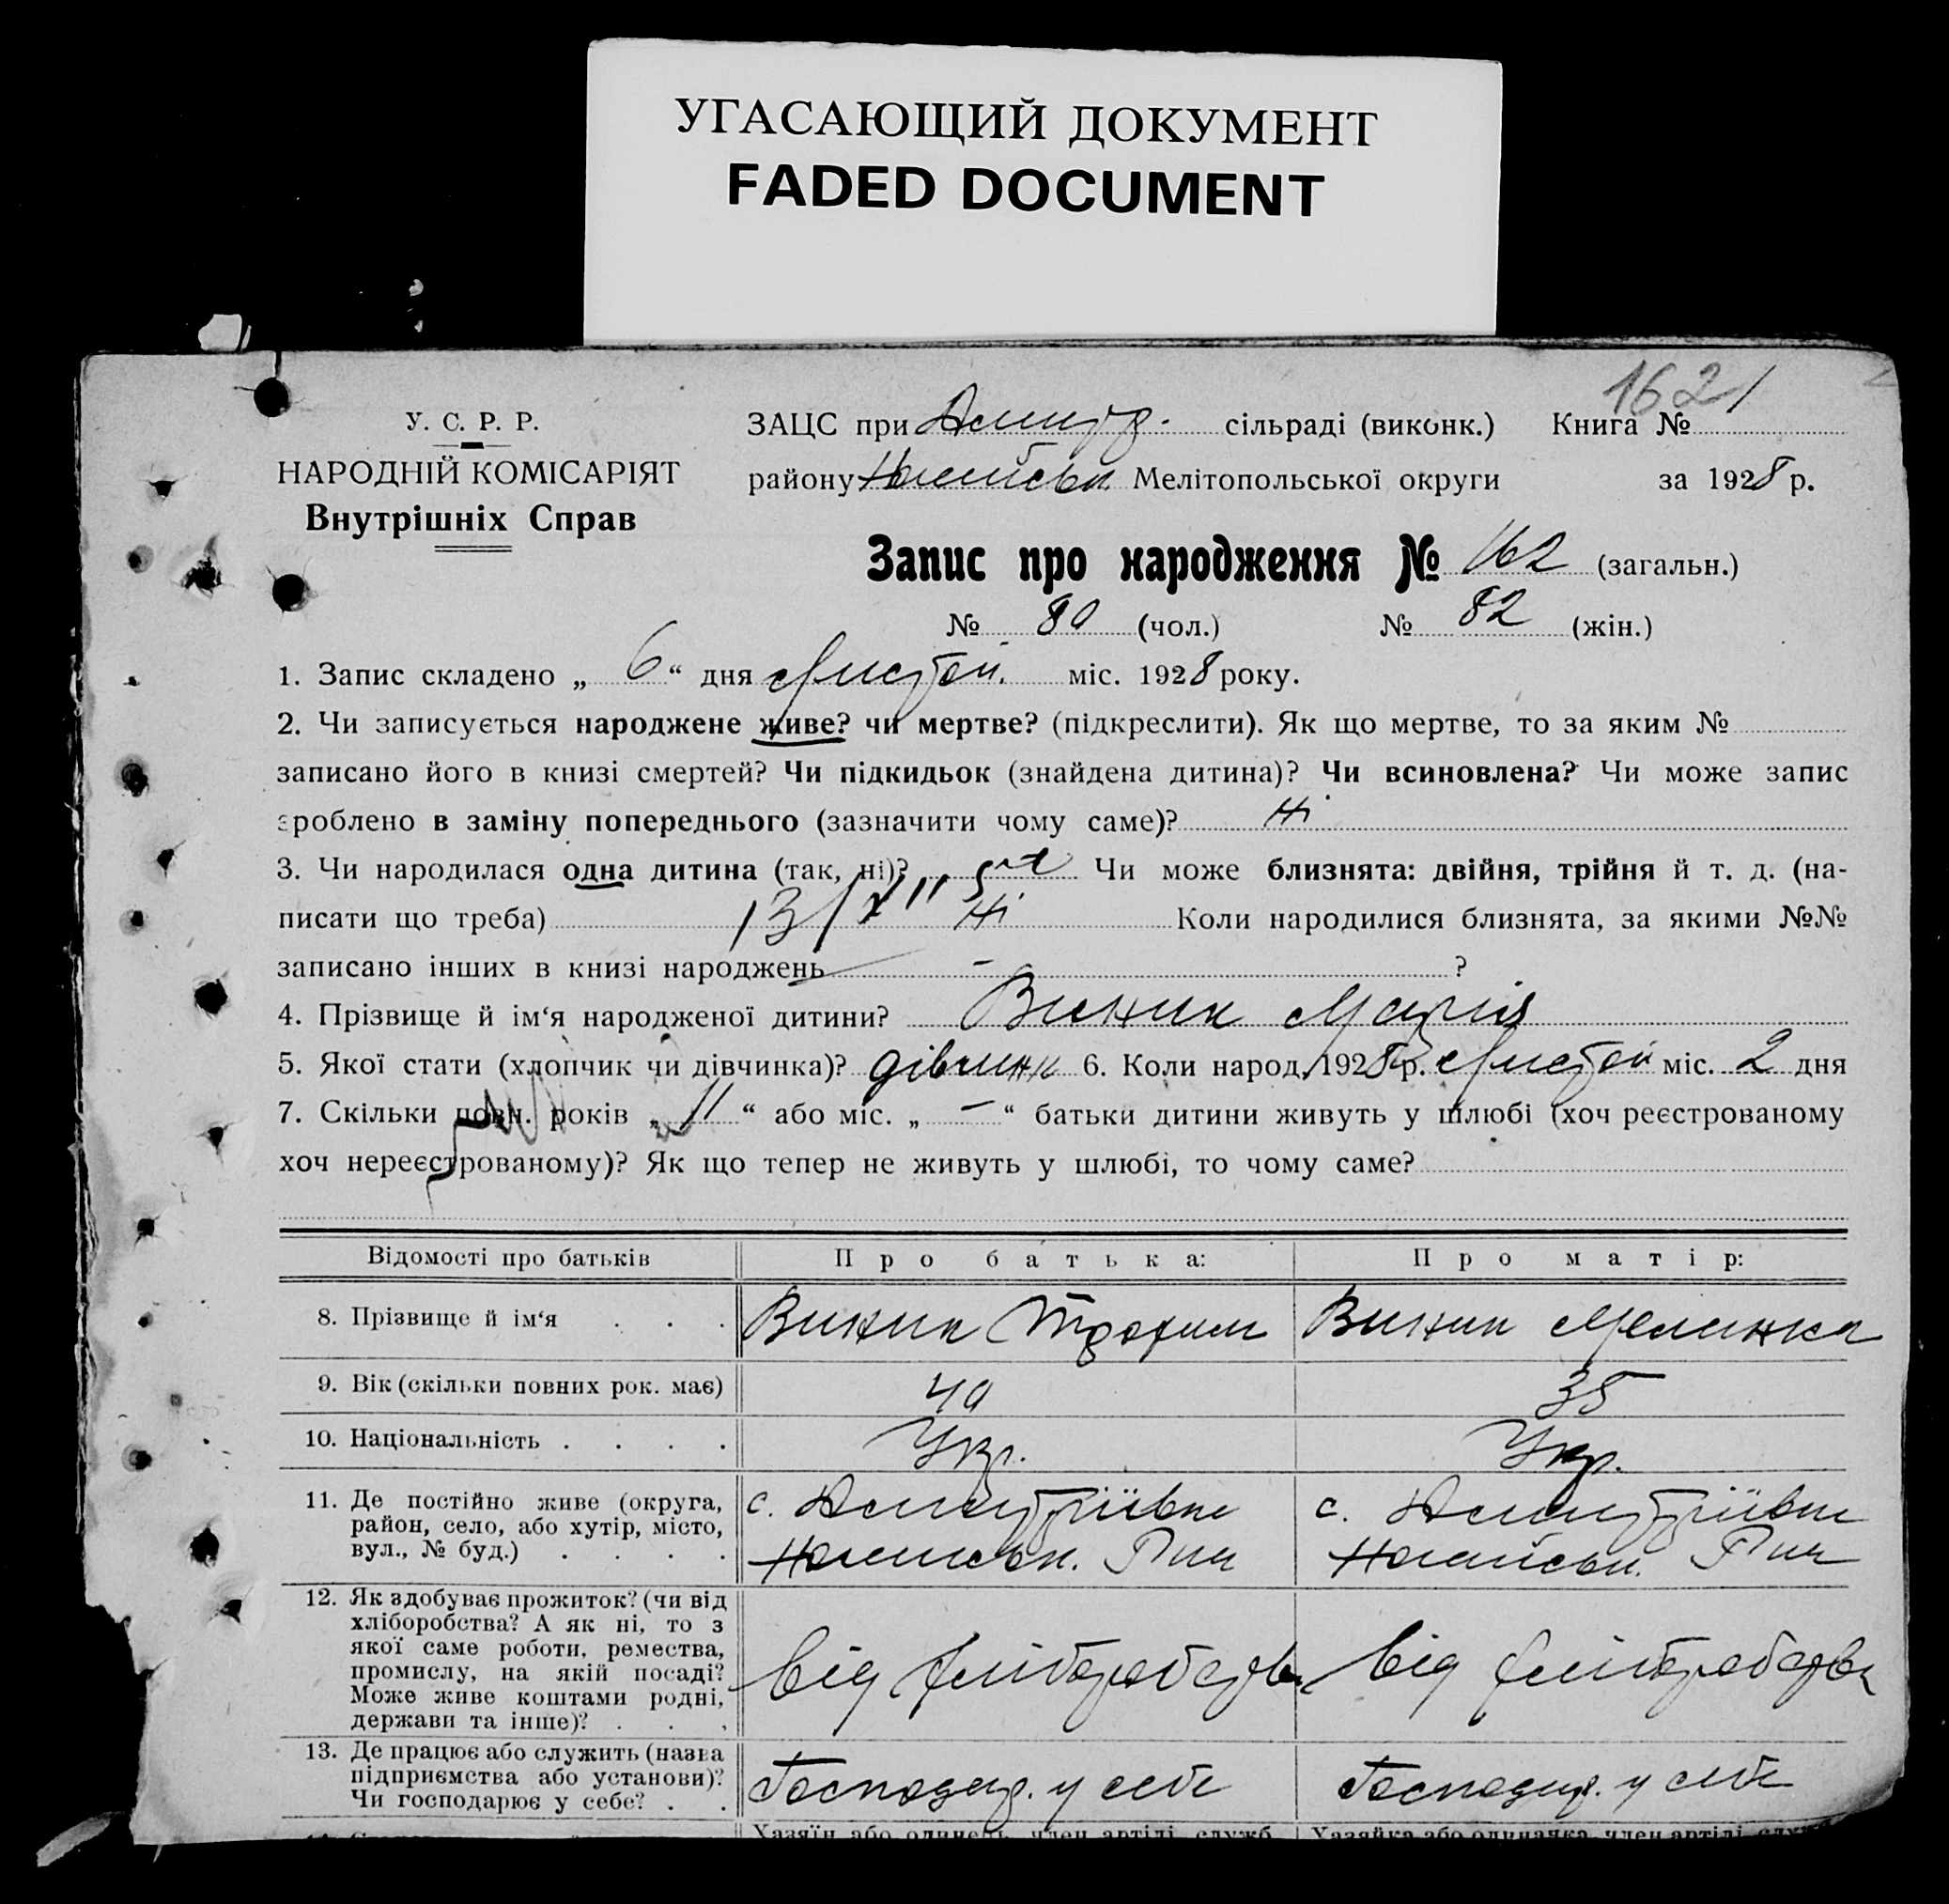 УГАСАЮЩИЙ ДОКУМЕНТ
FADED DOCUMENT
1621
У. С. Р. Р.
НАРОДНІЙ КОМІСАРІЯТ
Внутрішніх Справ
ЗАЦС при Дмитр. сільраді (виконк.) Книга №
району Ногайськ. Мелітопольської округи за 1928 р.
Запис про народження № 162 (загальн.)
№ 80 (чол.) № 82 (жін.)
1. Запис складено „ 6 “ дня Листоп. міс. 1928 року.
2. Чи записується народжене живе? чи мертве? (підкреслити). Як що мертве, то за яким №
записано його в книзі смертей? Чи підкидьок (знайдена дитина)? Чи всиновлена? Чи може запис
зроблено в заміну попереднього (зазначити чому саме)? Ні
3. Чи народилася одна дитина (так, ні)? Чи може близнята: двійня, трійня й т. д. (на-
писати що треба) Ні Коли народилися близнята, за якими №№
записано інших в книзі народжень – ?
4. Прізвище й ім‘я народженої дитини? Виник Марія
5. Якої стати (хлопчик чи дівчинка)? дівчинк 6. Коли народ. 1928 р. Листоп міс. 2 дня
7. Скільки повн. років „ 11 “ або міс. „ – “ батьки дитини живуть у шлюбі (хоч реєстрованому
хоч нереєстрованому)? Як що тепер не живуть у шлюбі, то чому саме?
Відомості про батьків Про батька: Про матір:
8. Прізвище й ім‘я . . . Виник Трохим Виник Меланка
9. Вік (скільки повних рок. має) 40 35
10. Національність . . . . Укр. Укр.
11. Де постійно живе (округа,
район, село, або хутір, місто,
вул., № буд.) . . . .
с. Дмитріївка
Ногайськ.
с. Дмитріївка
Ногайськ.
12. Як здобуває прожиток? (чи від
хліборобства? А як ні, то з
якої саме роботи, ремества,
промислу, на якій посаді?
Може живе коштами родні,
держави та інше)? . . .
від хліборобства
від хліборобства
13. Де працює або служить (назва
підприємства або установи)?
Чи господарює у себе? . .
Господар. у себе
Господар. у себе
Хазяїн або одинець, член артілі, служб.
Хазяйка або одиначка, член артілі,